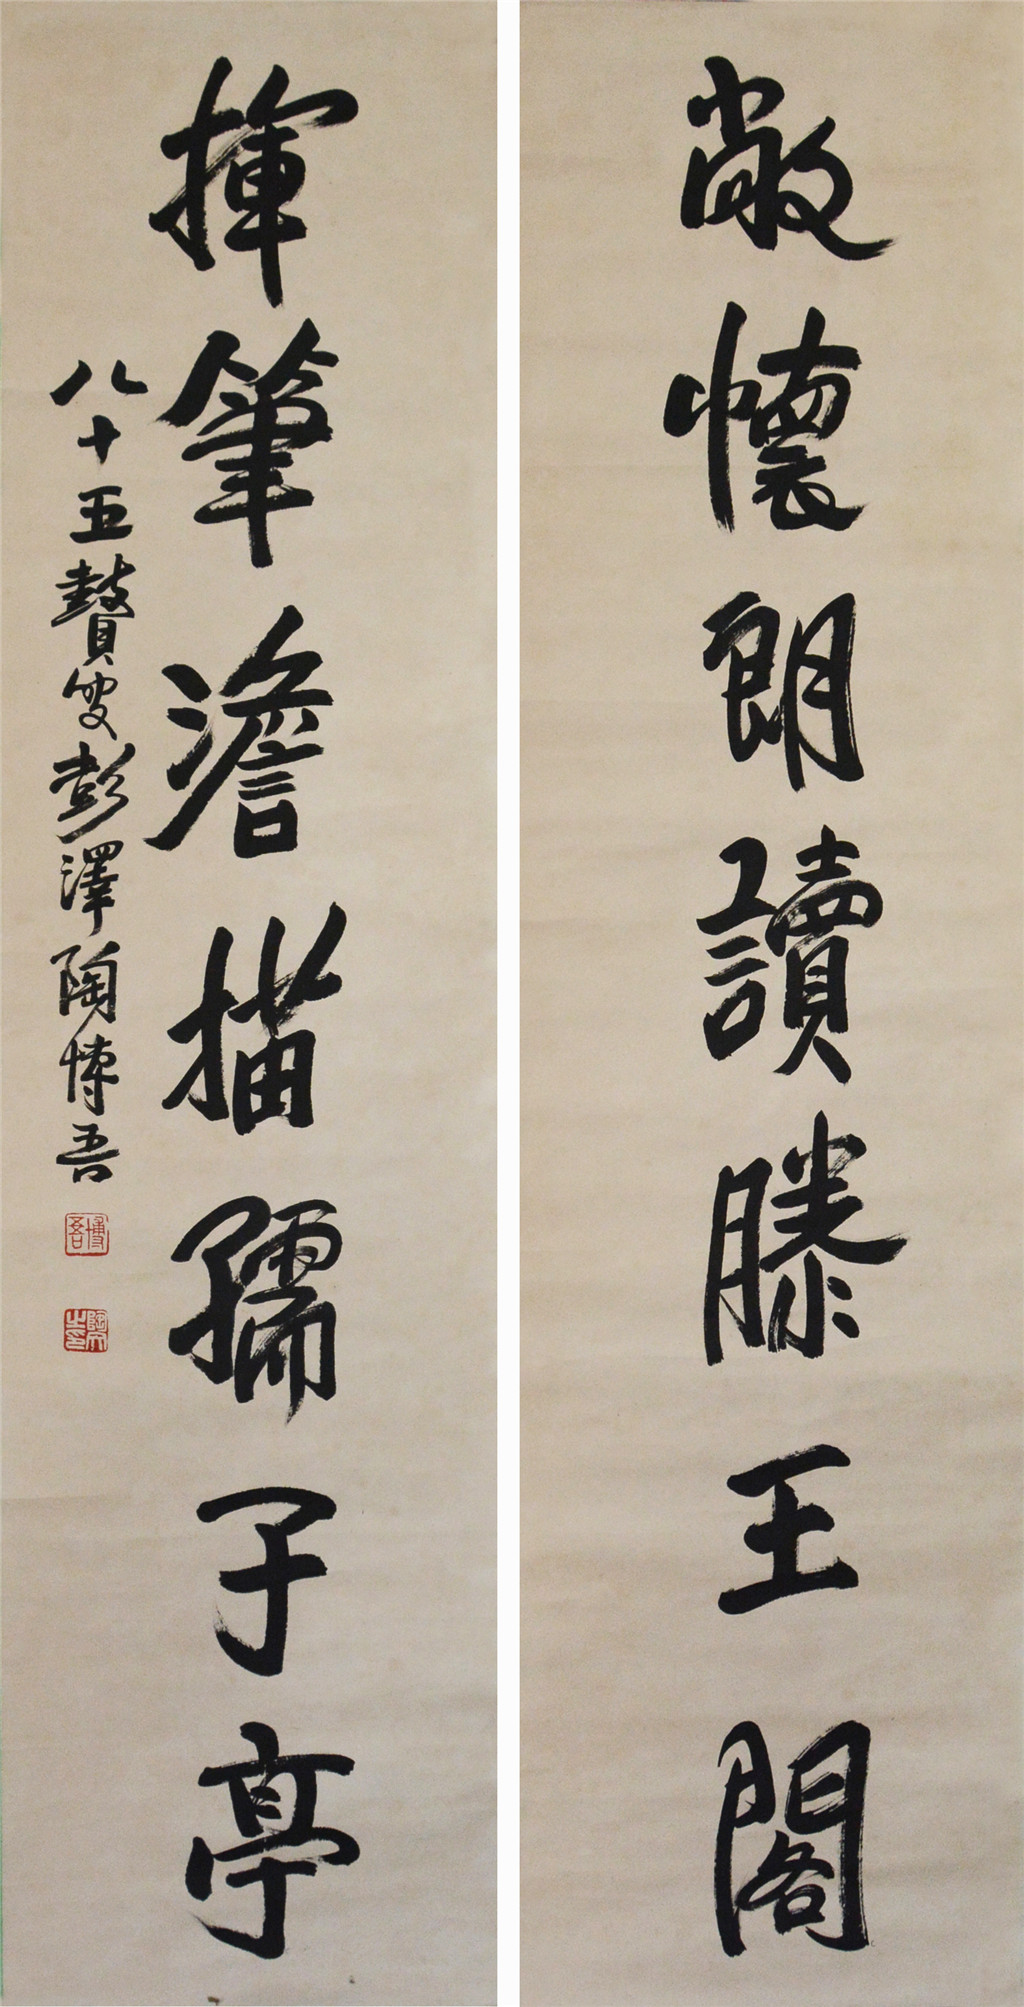 敞懷朗讀滕王閣
揮筆澹描孺子亭
八十五贅叟彭澤陶博吾
博吾
陶文之印